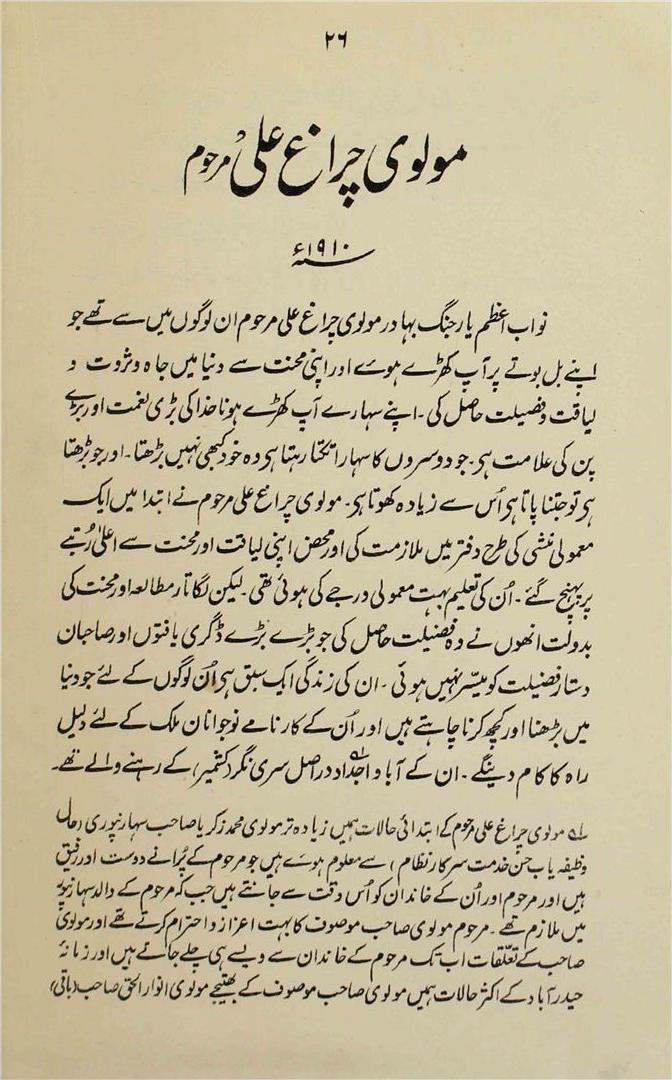 ۲۶
مولوی چراغ علی مرحوم
سنہ ۱۹۱۰ء
نواب اعظم یار جنگ بہادر مولوی چراغ علی مرحوم ان لوگوں میں سے تھے جو
اپنے بل بوتے پر آپ کھڑے ہوئے اور اپنی محنت سے دنیا میں جاہ و ثروت و
لیاقت و فضیلت حاصل کی ۔ اپنے سہارے آپ کھڑے ہونا خدا کی بڑی نعمت اور بڑے
پن کی علامت ہی ۔ جو دوسروں کا سہارا تکتا رہتا ہی وہ خود کبھی نہیں بڑھتا ۔ اور جو بڑھتا
ہی تو جتنا پاتا ہی اُس سے زیادہ کھوتا ہی ۔ مولوی چراغ علی مرحوم نے ابتدا میں ایک
معمولی منشی کی طرح دفتر میں ملازمت کی اور محض اپنی لیاقت اور محنت سے اعلیٰ رُتبے
پر پہنچ گئے ۔ اُن کی تعلیم بہت معمولی درجے کی ہوئی تھی ۔ لیکن لگاتار مطالعہ اور محنت کی
بدولت انھوں نے وہ فضیلت حاصل کی جو بڑے بڑے ڈگری یافتوں اور صاحبان
دستار فضیلت کو میسّر نہیں ہوئی ۔ ان کی زندگی ایک سبق ہی اُن لوگوں کے لئے جو دنیا
میں بڑھنا اور کچھ کرنا چاہتے ہیں اور اُن کے کارنامے نوجوانان ملک کے لئے دلیل
راہ کا کام دینگے ۔ ان کے آبا و اجداد ؎۱ در اصل سری نگر (کشمیر) کے رہنے والے تھے ۔
؎۱ مولوی چراغ علی مرحوم کے ابتدائی حالات ہمیں زیادہ تر مولوی محمد زکریا صاحب سہارنپوری (حال
وظیفہ یاب حسن خدمت سرکار نظام) سے معلوم ہوئے ہیں جو مرحوم کے پُرانے دوست اور رفیق
ہیں اور مرحوم اور اُن کے خاندان کو اُس وقت سے جانتے ہیں جب کہ مرحوم کے والد سہارنپور
میں ملازم تھے ۔ مرحوم مولوی صاحب موصوف کا بہت اعزاز و احترام کرتے تھے اور مولوی
صاحب کے تعلقات اب تک مرحوم کے خاندان سے ویسے ہی چلے جاتے ہیں اور زمانۂ
حیدرآباد کے اکثر حالات ہمیں مولوی صاحب موصوف کے بھتیجے مولوی انوار الحق صاحب (باقی)